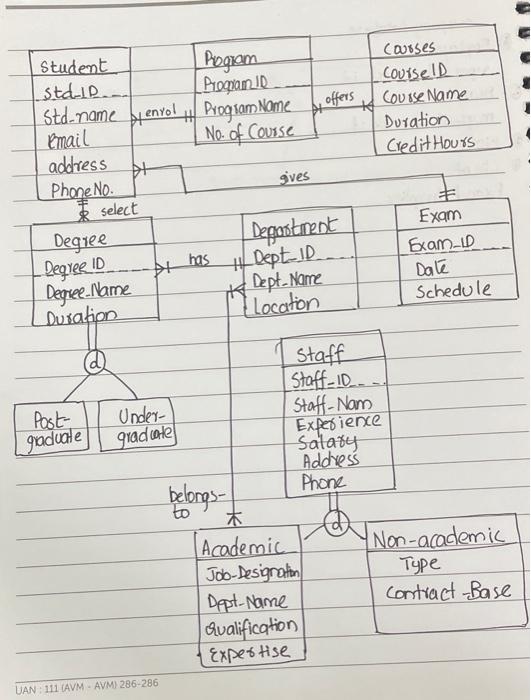 Student
Std_ID
Std-name
Email
address
Phone No.
enrol
Program
Program ID
Program Name
No. of Course
offers
Courses
Course ID
Course Name
Duration
Credit Hours
gives
select
Degree
Degree ID
Degree_Name
Duration
has
Department
Dept_ID
Dept_Name
Location
Exam
Exam_ID
Date
Schedule
d
Post-
graduate
Under-
graduate
Staff
Staff-ID
Staff-Nam
Experience
Salary
Address
Phone
belongs-
to
d
Academic
Job-Designation
Dept-Name
Qualification
Expertise
Non-academic
Type
Contract-Base
UAN : 111 (AVM - AVM) 286-286